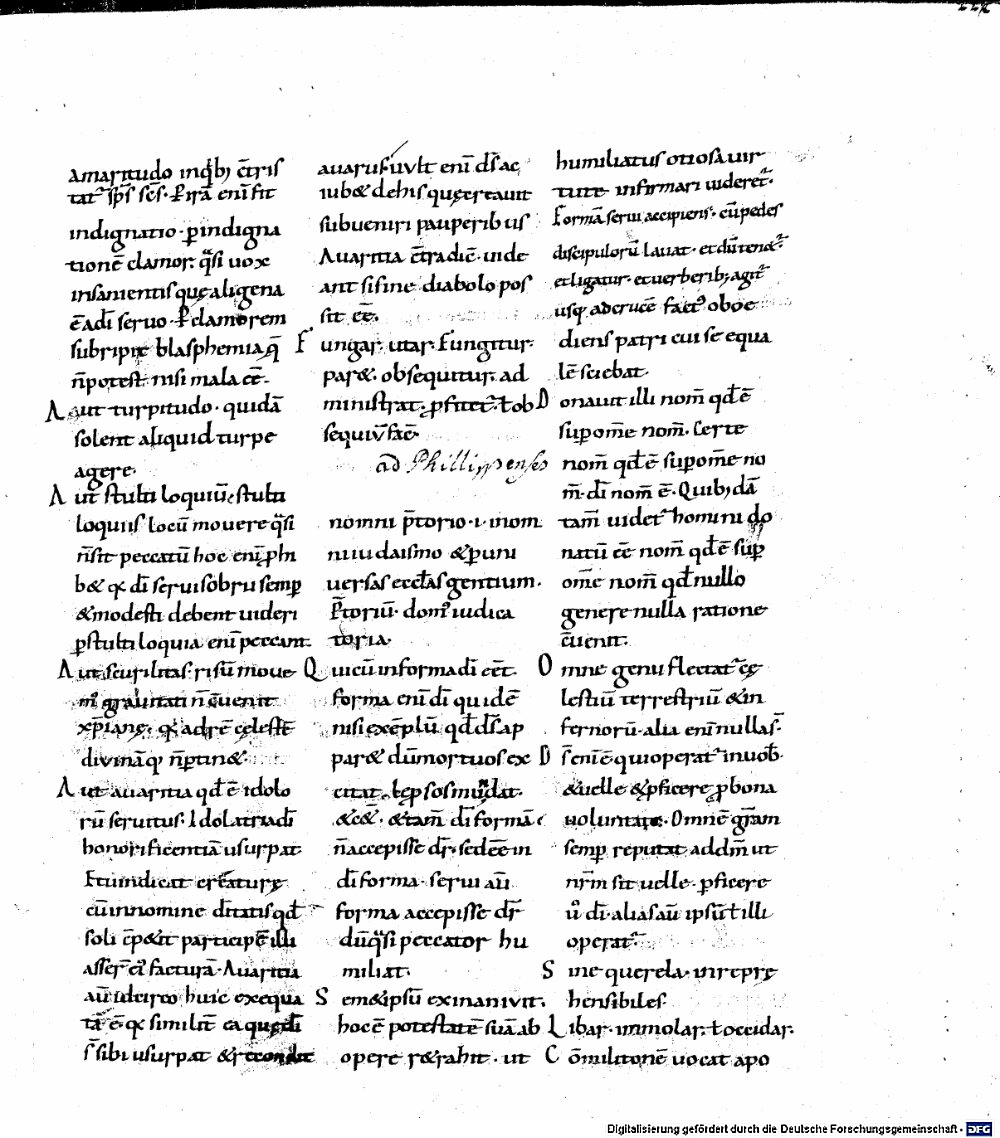 amaritudo inq̄b; c̄tris
tat᷑ sp̄s sc̄s. ꝑ irā enī fit
indignatio. ꝑ indigna
tionē clamor. q̄si uox
insanientis quę aligena
ē ad̄i seruo. ꝑ clamorem
subripit blasphemia q̄
n̄ potest nisi mala eē.
Aut turpitudo. quidā
solent aliquid turpe
agere.
Aut stulti loquiū. stulti
loquiis locū mouere q̄si
n̄ sit peccatū hoc enī ꝓhi
b& qđ di serui sobrii semꝑ
& modesti debent uideri
ꝑ stultiloquia enī peccant.
Aut scurilitas. risū moue
gravitati n̄ cuenit
xp̄ianę. q. ad rē cęlestē
diuināq; n̄ ꝑtin&.
Aut avaritia qđ ē idolo
rū seruitus. Idolatria dī
honorificentiā usurpat
Et uindicat creaturę
cū in nomine d̄itatis qđ
soli c̄p&it participē illi
asser& factura. Avaritia
aū idcirco huic exequa
ta ē. q. similit̄ ea quę dī
s̄ sibi usurpat & recondit
avarus. uult enī d̄s ac
iub& de his quę creauit
subueniri pauperibus
Avaritia c̄tradic̄. uide
ant si sine diabolo pos
sit eē.
Fungar. utar. Fungitur.
par&. obsequitur. ad
ministrat. ꝓficet᷑. ł ob
sequiū faē.
ad Phillippenses
nomni p̄torio. i. in om
ni iudaismo & ꝑ uni
uersas eccl̄as gentium.
P̄toriū. dom᷒ iudica
toria.
Qui cū in forma di eēt.
forma enī di quidē
nisi exēplū qđ d̄s ap
par& dū mortuos ex
citat.
&c&. & tam̄ di formā
n̄ accepisse dr̄. sed eē in
di forma. serui aū
forma accepisse dr̄
dū q̄si peccator hu
miliat.
Sem& ipsū exinaniuit.
hoc ē potestatē suā ab
opere r&rahit. ut
humiliatus otiosa uir
tute infirmari uideret᷑.
Formā serui accipiens. cū pedes
discipulorū lauat. et dū ten&᷑
et ligatur. et uerberib; agit᷑
usq; ad crucē fact᷒ oboe
diens patri cui se equa
lē sciebat.
Donauit illi nom̄ qđ ē
suꝑ om̄e nom̄. Certe
nom̄ qđ ē suꝑ om̄e no
m̄. di nom̄ ē. Quibꝰdā
tam̄ uidet᷑ homini do
natū eē nom̄ qđ ē suꝑ
om̄e nom̄ qđ nullo
genere nulla ratione
c̄uenit.
Omne genu flectat᷑ cę
lestiū terrestriū & in
fernorū. alia enī nulla s̄.
Ds̄ enī ē qui operat᷑ in uob̄.
& uelle & ꝑficere ꝓ bona
uoluntate. Omnē gr̄am
semꝑ reputat ad dm̄ ut
nr̄m sit uelle. ꝑficere
ū di alias aū ipsū ł illi
operat᷑.
Sine querela. inrepre
hensibiles.
Libar. immolar. ł occidar.
Cōmilitonē uocat apo
Digitalisierung gefördert durch die Deutsche Forschungsgemeinschaft - DFG